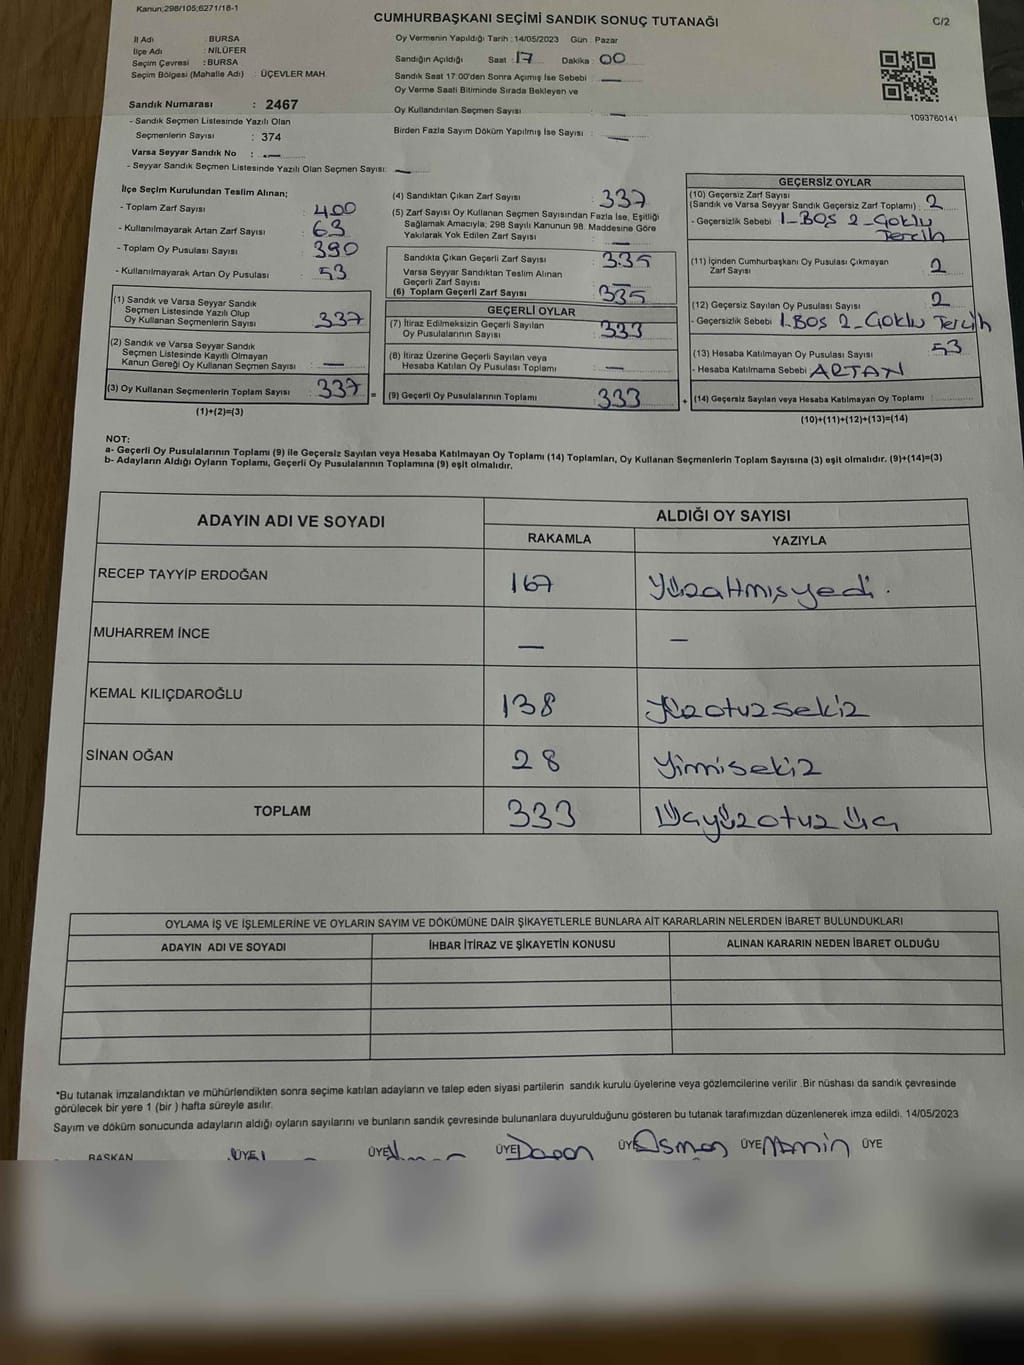 Kanun:298/105;6271/18-1
CUMHURBAŞKANI SEÇİMİ SANDIK SONUÇ TUTANAĞI
C/2
İl Adı : BURSA
İlçe Adı : NİLÜFER
Seçim Çevresi : BURSA
Seçim Bölgesi (Mahalle Adı) : ÜÇEVLER MAH.
Sandık Numarası : 2467
- Sandık Seçmen Listesinde Yazılı Olan
Seçmenlerin Sayısı : 374
Varsa Seyyar Sandık No : —
- Seyyar Sandık Seçmen Listesinde Yazılı Olan Seçmen Sayısı: —
Oy Vermenin Yapıldığı Tarih : 14/05/2023 Gün : Pazar
Sandığın Açıldığı Saat : 17 Dakika : 00
Sandık Saat 17:00'den Sonra Açımış İse Sebebi : —
Oy Verme Saati Bitiminde Sırada Bekleyen ve
Oy Kullandırılan Seçmen Sayısı : —
Birden Fazla Sayım Döküm Yapılmış İse Sayısı : —
1093760141
İlçe Seçim Kurulundan Teslim Alınan;
- Toplam Zarf Sayısı : 400
- Kullanılmayarak Artan Zarf Sayısı : 63
- Toplam Oy Pusulası Sayısı : 390
- Kullanılmayarak Artan Oy Pusulası : 53
(1) Sandık ve Varsa Seyyar Sandık
Seçmen Listesinde Yazılı Olup
Oy Kullanan Seçmenlerin Sayısı : 337
(2) Sandık ve Varsa Seyyar Sandık
Seçmen Listesinde Kayıtlı Olmayan
Kanun Gereği Oy Kullanan Seçmen Sayısı : —
(3) Oy Kullanan Seçmenlerin Toplam Sayısı : 337
(1)+(2)=(3)
(4) Sandıktan Çıkan Zarf Sayısı : 337
(5) Zarf Sayısı Oy Kullanan Seçmen Sayısından Fazla İse, Eşitliği
Sağlamak Amacıyla; 298 Sayılı Kanunun 98. Maddesine Göre
Yakılarak Yok Edilen Zarf Sayısı : —
Sandıkta Çıkan Geçerli Zarf Sayısı : 335
Varsa Seyyar Sandıktan Teslim Alınan
Geçerli Zarf Sayısı : —
(6) Toplam Geçerli Zarf Sayısı : 335
GEÇERLİ OYLAR
(7) İtiraz Edilmeksizin Geçerli Sayılan
Oy Pusulalarının Sayısı : 333
(8) İtiraz Üzerine Geçerli Sayılan veya
Hesaba Katılan Oy Pusulası Toplamı : —
= (9) Geçerli Oy Pusulalarının Toplamı : 333
GEÇERSİZ OYLAR
(10) Geçersiz Zarf Sayısı
(Sandık ve Varsa Seyyar Sandık Geçersiz Zarf Toplamı) : 2
- Geçersizlik Sebebi : 1_BOŞ 2_Çoklu
Tercih
(11) İçinden Cumhurbaşkanı Oy Pusulası Çıkmayan
Zarf Sayısı : 2
(12) Geçersiz Sayılan Oy Pusulası Sayısı : 2
- Geçersizlik Sebebi : 1.BOŞ 2_Çoklu Tercih
(13) Hesaba Katılmayan Oy Pusulası Sayısı : 53
- Hesaba Katılmama Sebebi : ARTAN
+ (14) Geçersiz Sayılan veya Hesaba Katılmayan Oy Toplamı :
(10)+(11)+(12)+(13)=(14)
NOT:
a- Geçerli Oy Pusulalarının Toplamı (9) ile Geçersiz Sayılan veya Hesaba Katılmayan Oy Toplamı (14) Toplamları, Oy Kullanan Seçmenlerin Toplam Sayısına (3) eşit olmalıdır. (9)+(14)=(3)
b- Adayların Aldığı Oyların Toplamı, Geçerli Oy Pusulalarının Toplamına (9) eşit olmalıdır.
ADAYIN ADI VE SOYADI
ALDIĞI OY SAYISI
RAKAMLA YAZIYLA
RECEP TAYYİP ERDOĞAN 167 Yüzaltmışyedi.
MUHARREM İNCE — —
KEMAL KILIÇDAROĞLU 138 Yüzotuzsekiz
SİNAN OĞAN 28 Yirmisekiz
TOPLAM 333 Üçyüzotuz üç
OYLAMA İŞ VE İŞLEMLERİNE VE OYLARIN SAYIM VE DÖKÜMÜNE DAİR ŞİKAYETLERLE BUNLARA AİT KARARLARIN NELERDEN İBARET BULUNDUKLARI
ADAYIN ADI VE SOYADI İHBAR İTİRAZ VE ŞİKAYETİN KONUSU ALINAN KARARIN NEDEN İBARET OLDUĞU
*Bu tutanak imzalandıktan ve mühürlendikten sonra seçime katılan adayların ve talep eden siyasi partilerin sandık kurulu üyelerine veya gözlemcilerine verilir .Bir nüshası da sandık çevresinde
görülecek bir yere 1 (bir ) hafta süreyle asılır.
Sayım ve döküm sonucunda adayların aldığı oyların sayılarını ve bunların sandık çevresinde bulunanlara duyurulduğunu gösteren bu tutanak tarafımızdan düzenlenerek imza edildi. 14/05/2023
BAŞKAN ÜYE ÜYE ÜYE ÜYE Osman ÜYE ÜYE